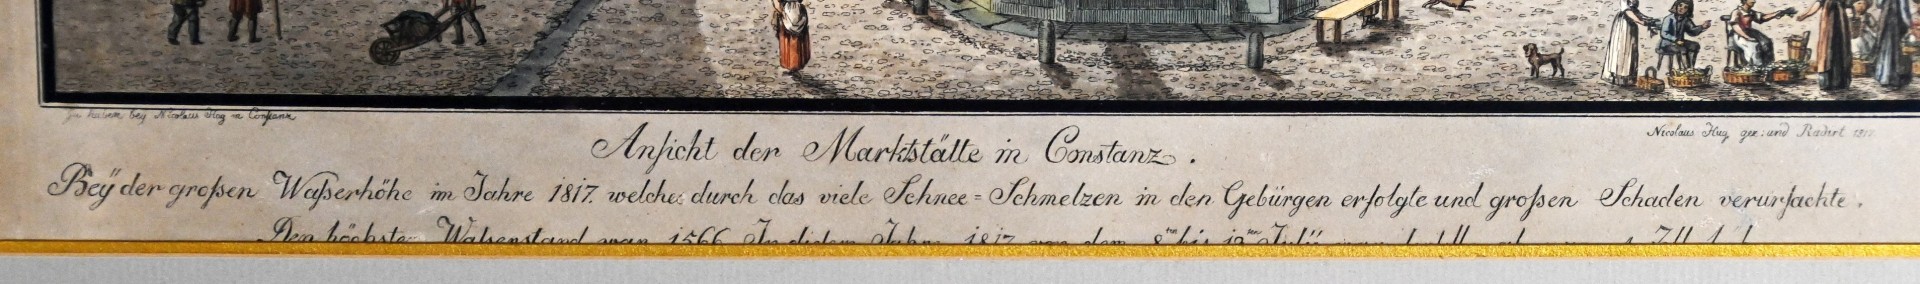 Zu haben bey Nicolaus Hug in Constanz
Nicolaus Hug gez: und Radirt 1817.
Anſicht der Marktſtätte in Constanz.
Beÿ der groſsen Waſserhöhe im Jahre 1817. welche durch das viele Schnee = Schmelzen in den Gebürgen erfolgte und groſsen Schaden verurſachte.
Den höchsten Waſserstand war 1566 In dieſem Jahr 1817 von dem 8ten bis 12ten Julÿ